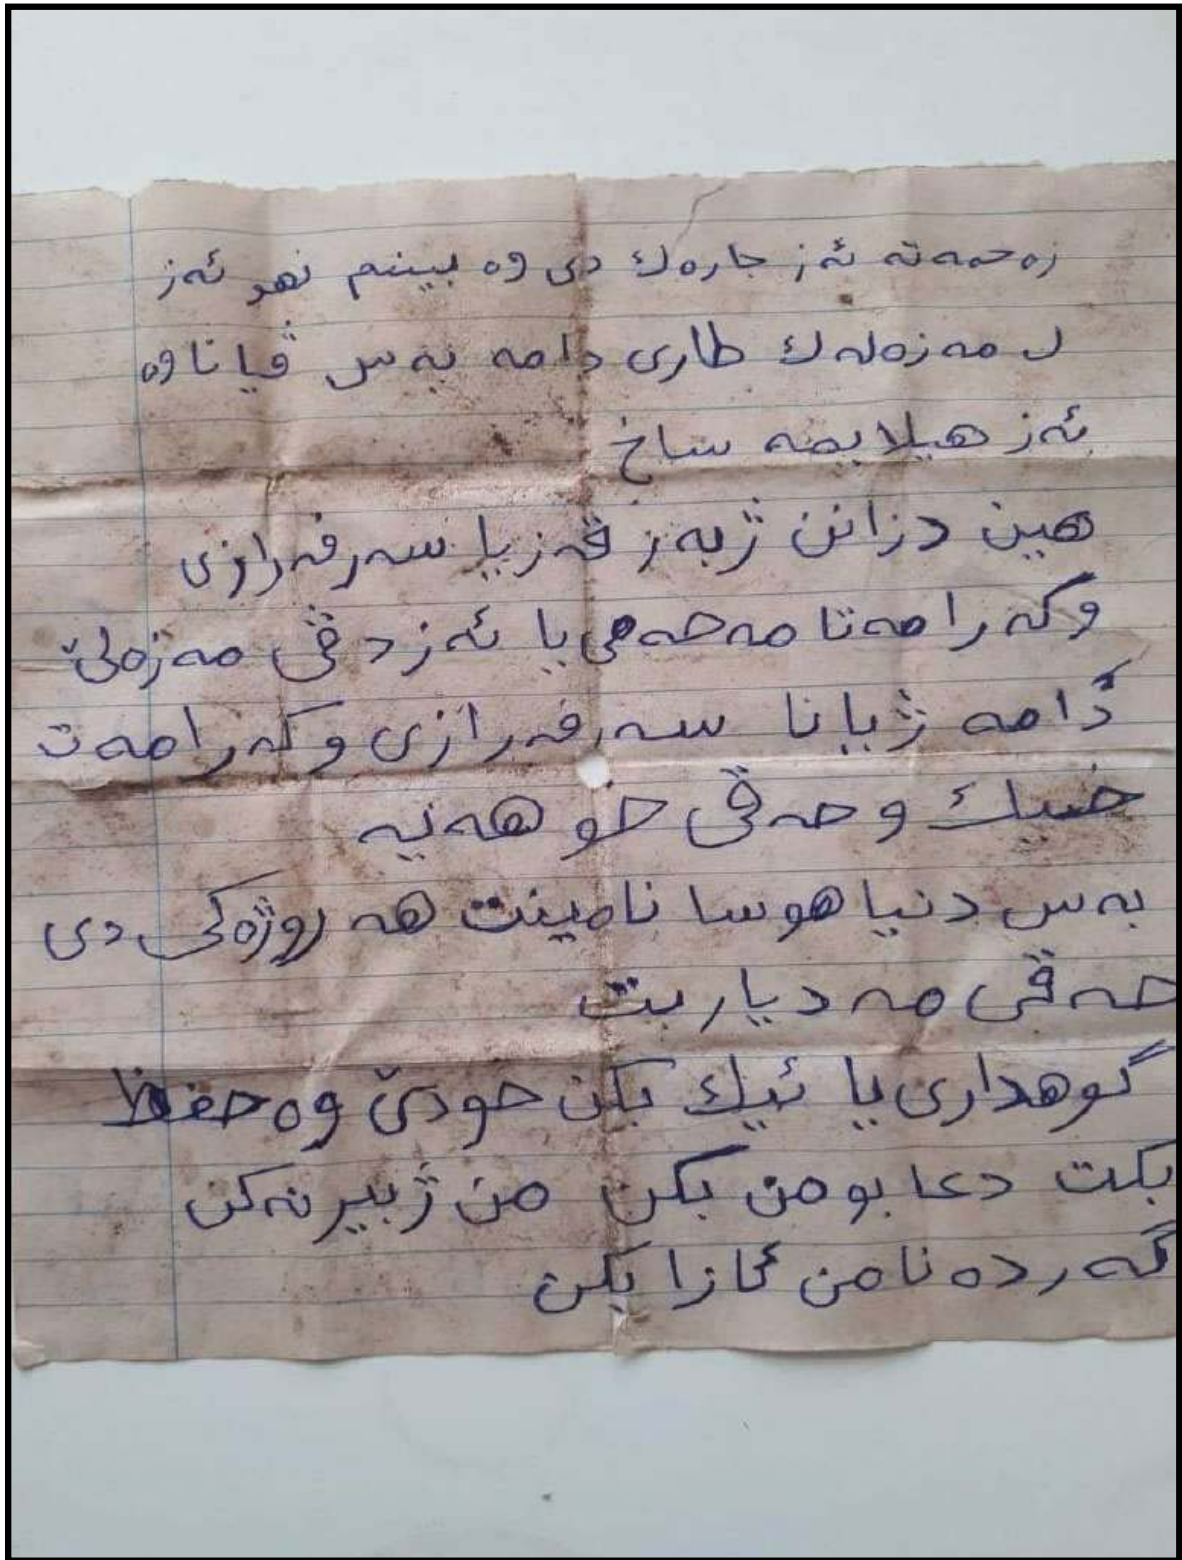 زەحمەتە ئەز جارەك دی وە بینم نهو ئەز
ل مەزەلەك طاری دامە بەس ڤیانا وە
ئەز هیلایمە ساخ
هین دزانن ژبەر ڤەزیا سەرفەرازی
وکەرامەتا مەحەمی یا ئەز دڤی مەزەلێ
دامە ژیانا سەرفەرازی وکەرامەت
خیك وحەقی خو هەنیە
بەس دنیا هوسا نامینت هە روژەکی دی
حەقی مە دیار بت
گوهداری یا ئیك بکن خودێ وە حفظ
بکت دعا بو من بکن من ژبیر نەکن
گەردەنا من ئازا بکن